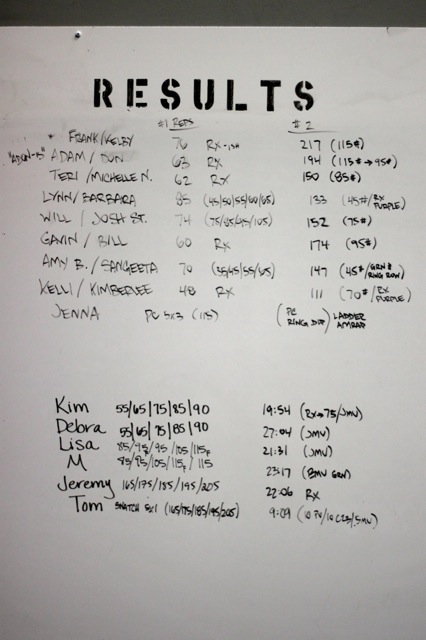 RESULTS
#1 REPS #2
* FRANK/KELBY 76 RX-ISH 217 (115#)
"ADON-IS" ADAM/DON 63 RX 194 (115#→95#)
TERI/MICHELLE N. 62 RX 150 (85#)
LYNN/BARBARA 85 (45/50/55/60/65) 133 (45#/RX PURPLE)
WILL/JOSH ST. 74 (75/85/95/105) 152 (75#)
GAVIN/BILL 60 RX 174 (95#)
AMY B./SANGEETA 70 (35/45/55/65) 147 (45#/GRN & RING ROW)
KELLI/KIMBERLEE 48 RX 111 (70#/RX PURPLE)
JENNA PC 5x3 (115) (PC RING DIP) LADDER AMRAP
Kim 55/65/75/85/90 19:54 (RX→75/JMU)
Debra 55/65/75/85/90 27:04 (JMU)
Lisa 85/95/95/105/115F 21:31 (JMU)
M 85/95/105/115F/115 23:17 (BMU GRN)
Jeremy 165/175/185/195/205 22:06 RX
Tom SNATCH 5x1 (165/175/185/195/205) 9:09